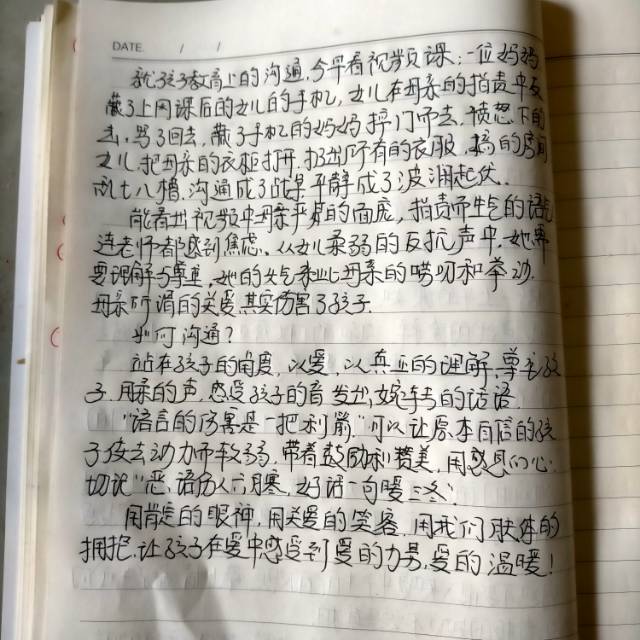 DATE. / /
就孩子教育上的沟通,今早看视频课:一位妈妈
藏了上网课后的女儿的手机,女儿在母亲的指责中反
击,骂了回去,藏了手机的妈妈摔门而去,愤怒下的
女儿,把母亲的衣柜打开,扔出所有的衣服,搞的房间
乱七八糟,沟通成了战争平静成了波涛起伏.
能看出视频中母亲严厉的面庞,指责而生气的语气
连老师都感到焦虑.从女儿柔弱的反抗声中,她需
要理解与尊重,她的火气来业母亲的唠叨和举动.
母亲所谓的关爱其实伤害了孩子.
如何沟通?
站在孩子的角度,以爱,以真正的理解、尊重孩
子.用柔的声,感受孩子的音发出婉转的话语.
"语言的伤害是一把利箭"可以让原本自信的孩
子失去动力而软弱.带着鼓励和赞美,用感恩的心.
切记"恶语伤人六月寒,好话一句暖三冬".
用肯定的眼神,用关爱的笑容,用我们肢体的
拥抱,让孩子在爱中感受到爱的力量,爱的温暖!